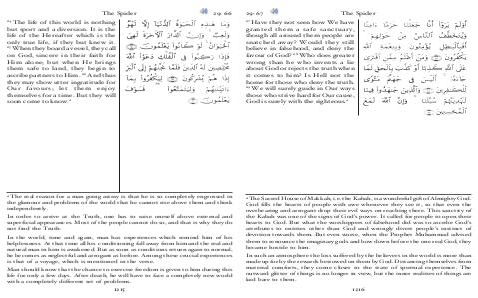 The Spider 29: 66
64 The life of this world is nothing
but sport and diversion. It is the
life of the Hereafter which is the
only true life, if they but knew it.
65 When they board a vessel, they call
on God, sincere in their faith for
Him alone; but when He brings
them safe to land, they begin to
ascribe partners to Him. 66 And thus
they may show utter ingratitude for
Our favours; let them enjoy
themselves for a time. But they will
soon come to know.a
وَمَا هَٰذِهِ ٱلْحَيَوٰةُ ٱلدُّنْيَآ إِلَّا لَهْوٌ
وَلَعِبٌ وَإِنَّ ٱلدَّارَ ٱلْءَاخِرَةَ لَهِىَ
ٱلْحَيَوَانُ لَوْ كَانُوا۟ يَعْلَمُونَ
فَإِذَا رَكِبُوا۟ فِى ٱلْفُلْكِ دَعَوُا۟ ٱللَّهَ
مُخْلِصِينَ لَهُ ٱلدِّينَ فَلَمَّا نَجَّىٰهُمْ إِلَى ٱلْبَرِّ
إِذَا هُمْ يُشْرِكُونَ لِيَكْفُرُوا۟ بِمَآ
ءَاتَيْنَٰهُمْ وَلِيَتَمَتَّعُوا۟ فَسَوْفَ
يَعْلَمُونَ
a The real reason for a man going astray is that he is so completely engrossed in
the glamour and problems of the world that he cannot rise above them and think
independently.
In order to arrive at the Truth, one has to raise oneself above external and
superficial appearances. Most of the people cannot do so, and that is why they do
not find the Truth.
In the world, time and again, man has experiences which remind him of his
helplessness. At that time all his conditioning fall away from him and the real and
natural man in him is awakened. But as soon as conditions return again to normal,
he becomes as neglectful and arrogant as before. Among these crucial experiences
is that of a voyage, which is mentioned in the verse.
Man should know that the chance to exercise freedom is given to him during this
life for only a few days. After death, he will have to face a completely new world
with a completely different set of problems.
1215
29: 67 The Spider
67 Have they not seen how We have
granted them a safe sanctuary,
though all around them people are
snatched away? Would they still
believe in falsehood, and deny the
favour of God? 68 Who does greater
wrong than he who invents a lie
about God or rejects the truth when
it comes to him? Is Hell not the
home for those who deny the truth.
69 We will surely guide in Our ways
those who strive hard for Our cause,
God is surely with the righteous.a
أَوَلَمْ يَرَوْا۟ أَنَّا جَعَلْنَا حَرَمًا ءَامِنًا
وَيُتَخَطَّفُ ٱلنَّاسُ مِنْ حَوْلِهِمْ
أَفَبِٱلْبَٰطِلِ يُؤْمِنُونَ وَبِنِعْمَةِ ٱللَّهِ
يَكْفُرُونَ وَمَنْ أَظْلَمُ مِمَّنِ ٱفْتَرَىٰ
عَلَى ٱللَّهِ كَذِبًا أَوْ كَذَّبَ بِٱلْحَقِّ لَمَّا
جَآءَهُۥٓ أَلَيْسَ فِى جَهَنَّمَ مَثْوًى
لِّلْكَٰفِرِينَ وَٱلَّذِينَ جَٰهَدُوا۟ فِينَا
لَنَهْدِيَنَّهُمْ سُبُلَنَا وَإِنَّ ٱللَّهَ لَمَعَ
ٱلْمُحْسِنِينَ
a The Sacred House of Makkah, i.e. the Kabah, is a wonderful gift of Almighty God.
God fills the hearts of people with awe whenever they see it, so that even the
overbearing and arrogant drop their evil ways on reaching there. This sanctity of
the Kabah was one of the signs of God's power. It called for people to open their
hearts to God. But what the worshippers of falsehood did was to ascribe God's
attributes to entities other than God and wrongly divert people's instinct of
devotion towards them. But even worse, when the Prophet Muhammad advised
them to renounce the imaginary gods and bow down before the one real God, they
became hostile to him.
In such an atmosphere the loss suffered by the believers in the world is more than
made up for by the rewards bestowed on them by God. Distancing themselves from
material comforts, they come closer to the state of spiritual experience. The
outward glitter of things is no longer in view, but the inner realities of things are
laid bare to them.
1216